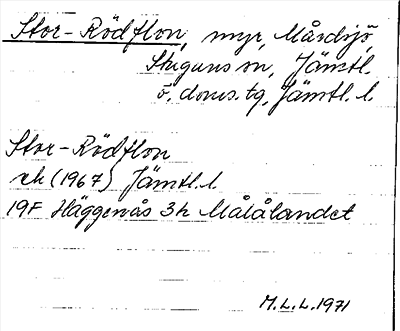 Stor-Rödflon, myr, Mårdsjö,
Stuguns sn, Jämtl.
ö. doms. tg, Jämtl. l.
Stor-Rödflon
ek (1967) Jämtl. l.
19F Häggenås 3h Målålandet
M.L.L. 1971